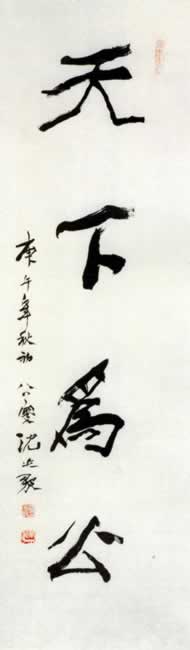 天下為公
庚午年秋初 八八叟 沈延毅